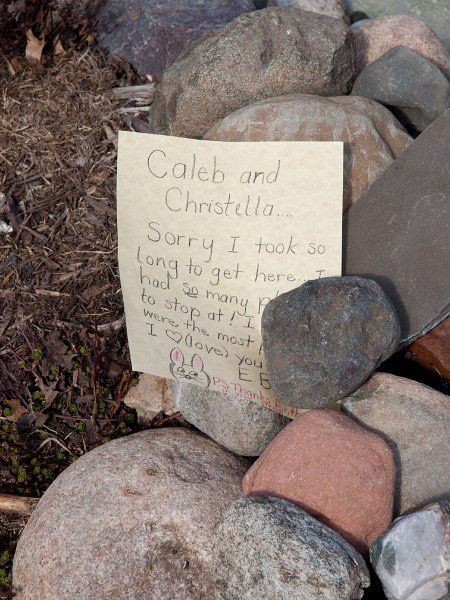 Caleb and
Christella....
Sorry I took so
long to get here... I
had so many
to stop at! I
were the most
I ♡(love) you
E.B
P.S Thanks